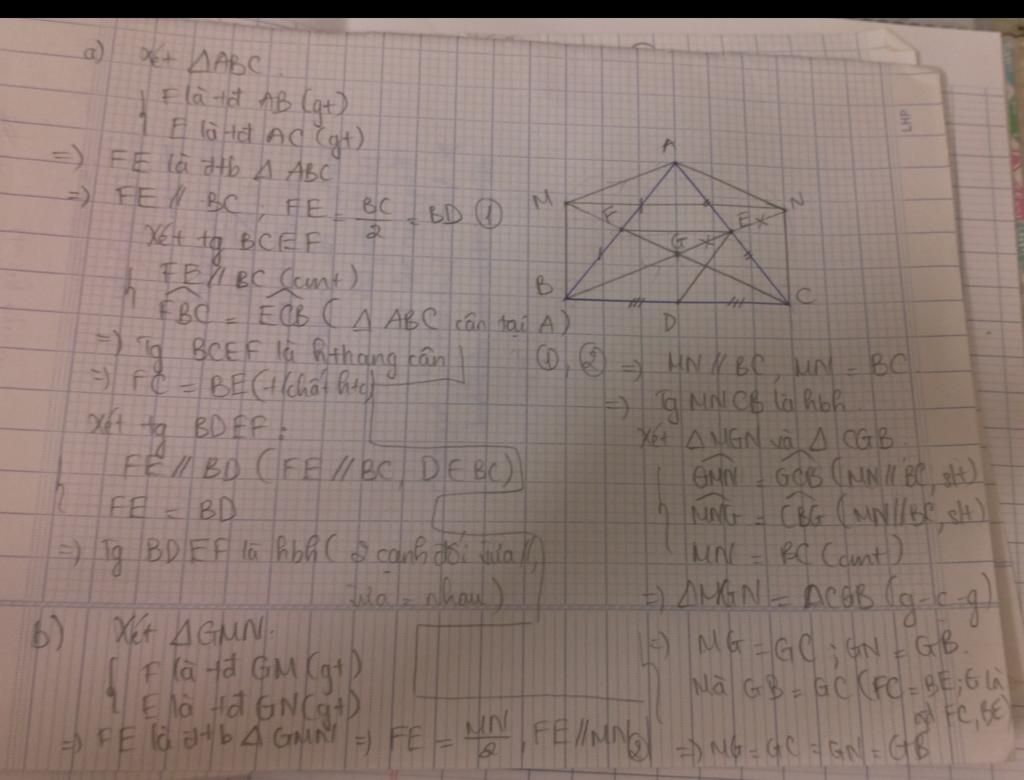 a) Xét ΔABC.
F là tđ AB (gt)
E là tđ AC (gt)
=) FE là đtb Δ ABC
=) FE // BC, FE = BC/2 = BD ①
Xét tg BCEF
FE // BC (cmt)
FBC = ECB (Δ ABC cân tại A)
=) Tg BCEF là hthang cân
=) FC = BE (t/chất htc)
Xét tg BDEF:
FE // BD (FE // BC, D ∈ BC)
FE = BD
=) Tg BDEF là hbh (2 cạnh đối vừa //,
vừa = nhau)
b) Xét ΔGMN.
F là tđ GM (gt)
E là tđ GN (gt)
=) FE là đtb ΔGMN =) FE = MN/2, FE // MN ②
A
M
N
F
E
G
B
C
D
①, ② =) MN // BC, MN = BC
=) Tg MNCB là hbh.
Xét ΔMGN và Δ CGB
GMN = GCB (MN // BC, slt)
MNG = CBG (MN // BC, slt)
MN = BC (cmt)
=) ΔMGN = ΔCGB (g-c-g)
=) MG = GC ; GN = GB.
Mà GB = GC (FC = BE; G là
FC, BE)
=) MG = GC = GN = GB
LHP